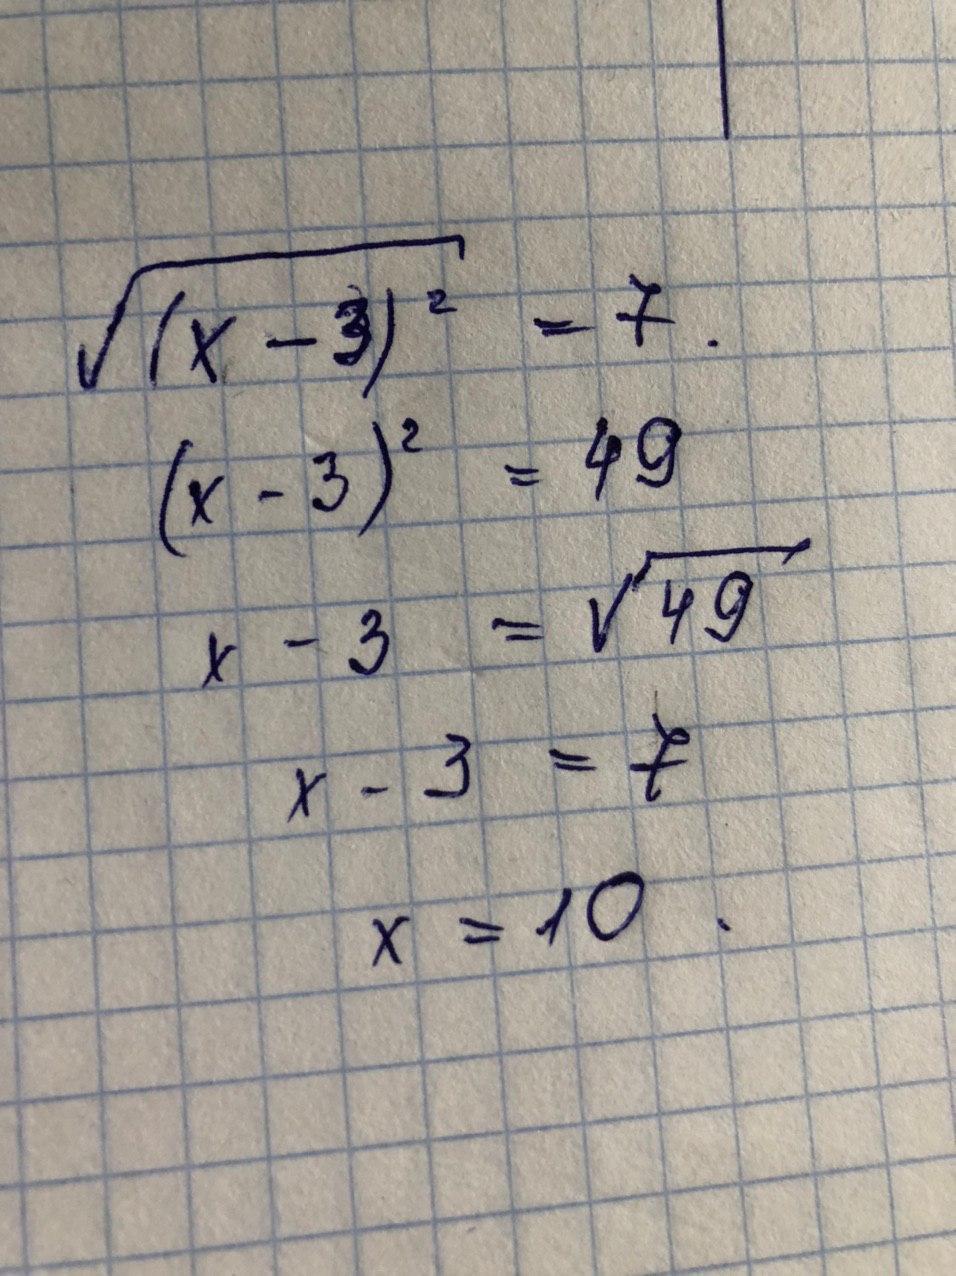 √(x - 3)² = 7.
(x - 3)² = 49
x - 3 = √49
x - 3 = 7
x = 10.